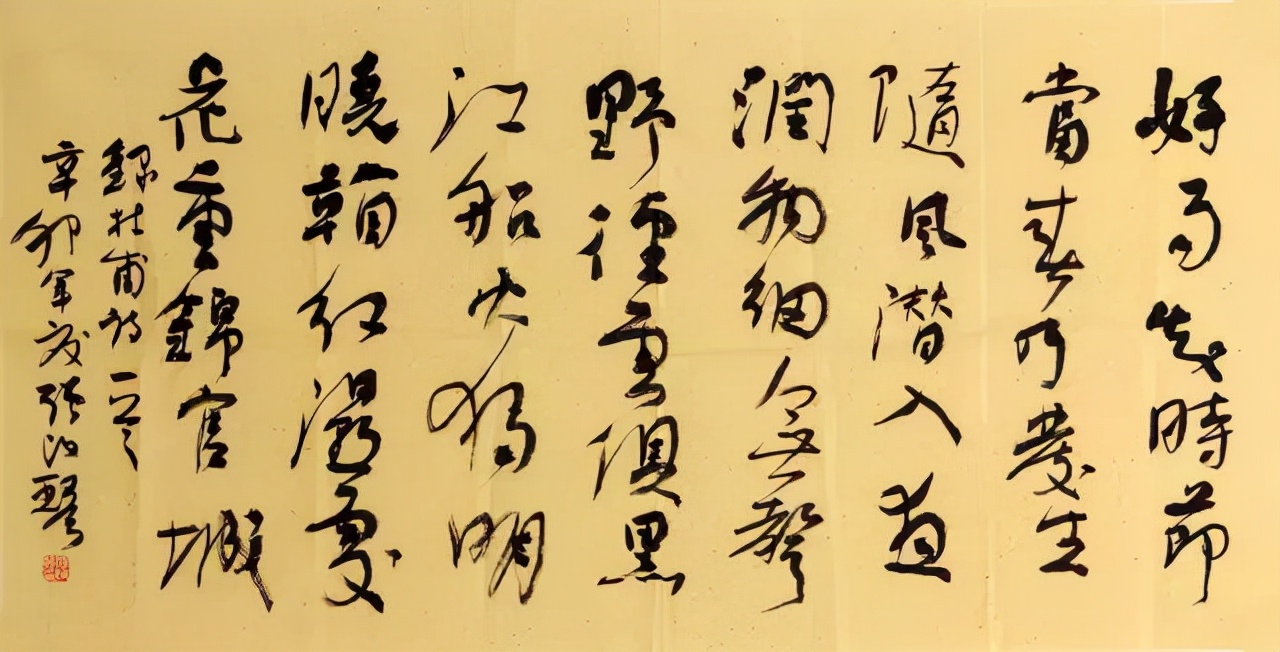 好雨知時節
當春乃發生
隨風潛入夜
潤物細無聲
野徑雲俱黑
江船火獨明
曉看紅濕處
花重錦官城
錄杜甫詩一首
辛卯年夏張